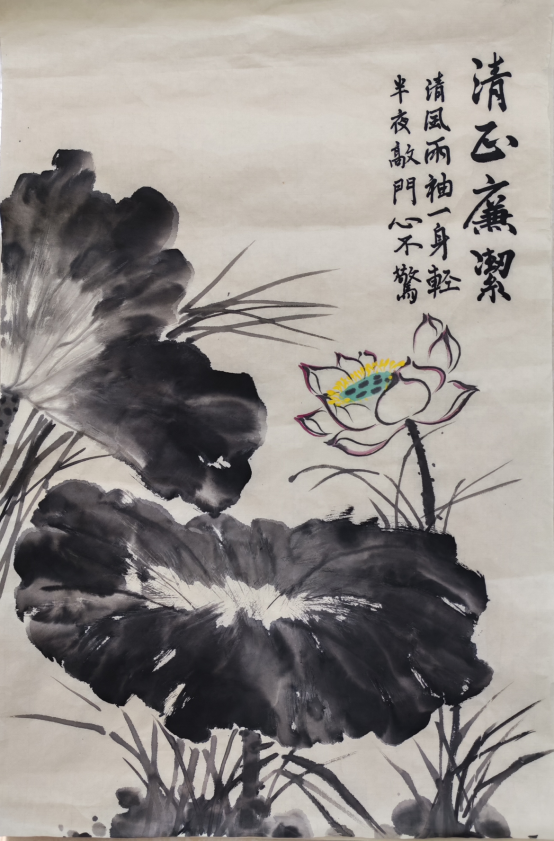 清正廉潔
清風兩袖一身輕
半夜敲門心不驚